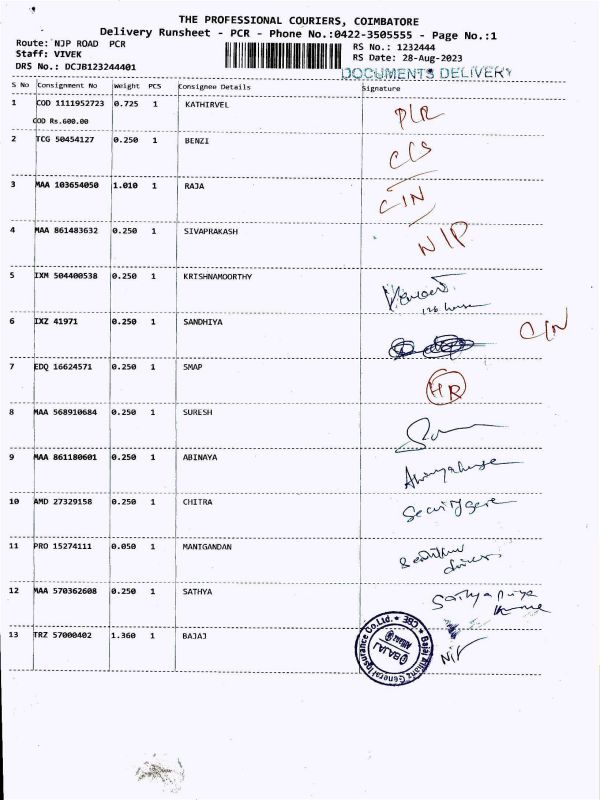 THE PROFESSIONAL COURIERS, COIMBATORE
Delivery Runsheet - PCR - Phone No.:0422-3505555 - Page No.:1
Route: NJP ROAD PCR
Staff: VIVEK
DRS No.: DCJB123244401
RS No.: 1232444
RS Date: 28-Aug-2023
DOCUMENTS DELIVERY
S No Consignment No Weight PCS Consignee Details Signature
1 COD 1111952723 0.725 1 KATHIRVEL
COD Rs.600.00
2 TCG 50454127 0.250 1 BENZI
3 MAA 103654050 1.010 1 RAJA CIN
4 MAA 861483632 0.250 1 SIVAPRAKASH N/P
5 IXM 504400538 0.250 1 KRISHNAMOORTHY
6 IXZ 41971 0.250 1 SANDHIYA C/N
7 EDQ 16624571 0.250 1 SMAP HR
8 MAA 568910684 0.250 1 SURESH
9 MAA 861180601 0.250 1 ABINAYA
10 AMD 27329158 0.250 1 CHITRA
11 PRO 15274111 0.050 1 MANIGANDAN
12 MAA 570362608 0.250 1 SATHYA Sathyapriya
13 TRZ 57000402 1.360 1 BAJAJ
Bajaj Allianz General Insurance Co.Ltd. * CBE *
BAJAJ Allianz